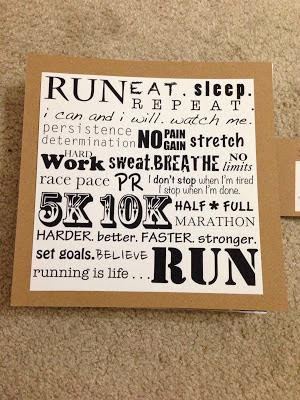 RUN EAT. sleep.
REPEAT.
i can and i will. watch me.
persistence NO PAIN
determination GAIN stretch
HARD NO
Work sweat. BREATHE limits
race pace PR I don't stop when I'm tired
I stop when I'm done.
5K 10K HALF * FULL
MARATHON
HARDER. better. FASTER. stronger.
set goals. BELIEVE
running is life . . . RUN